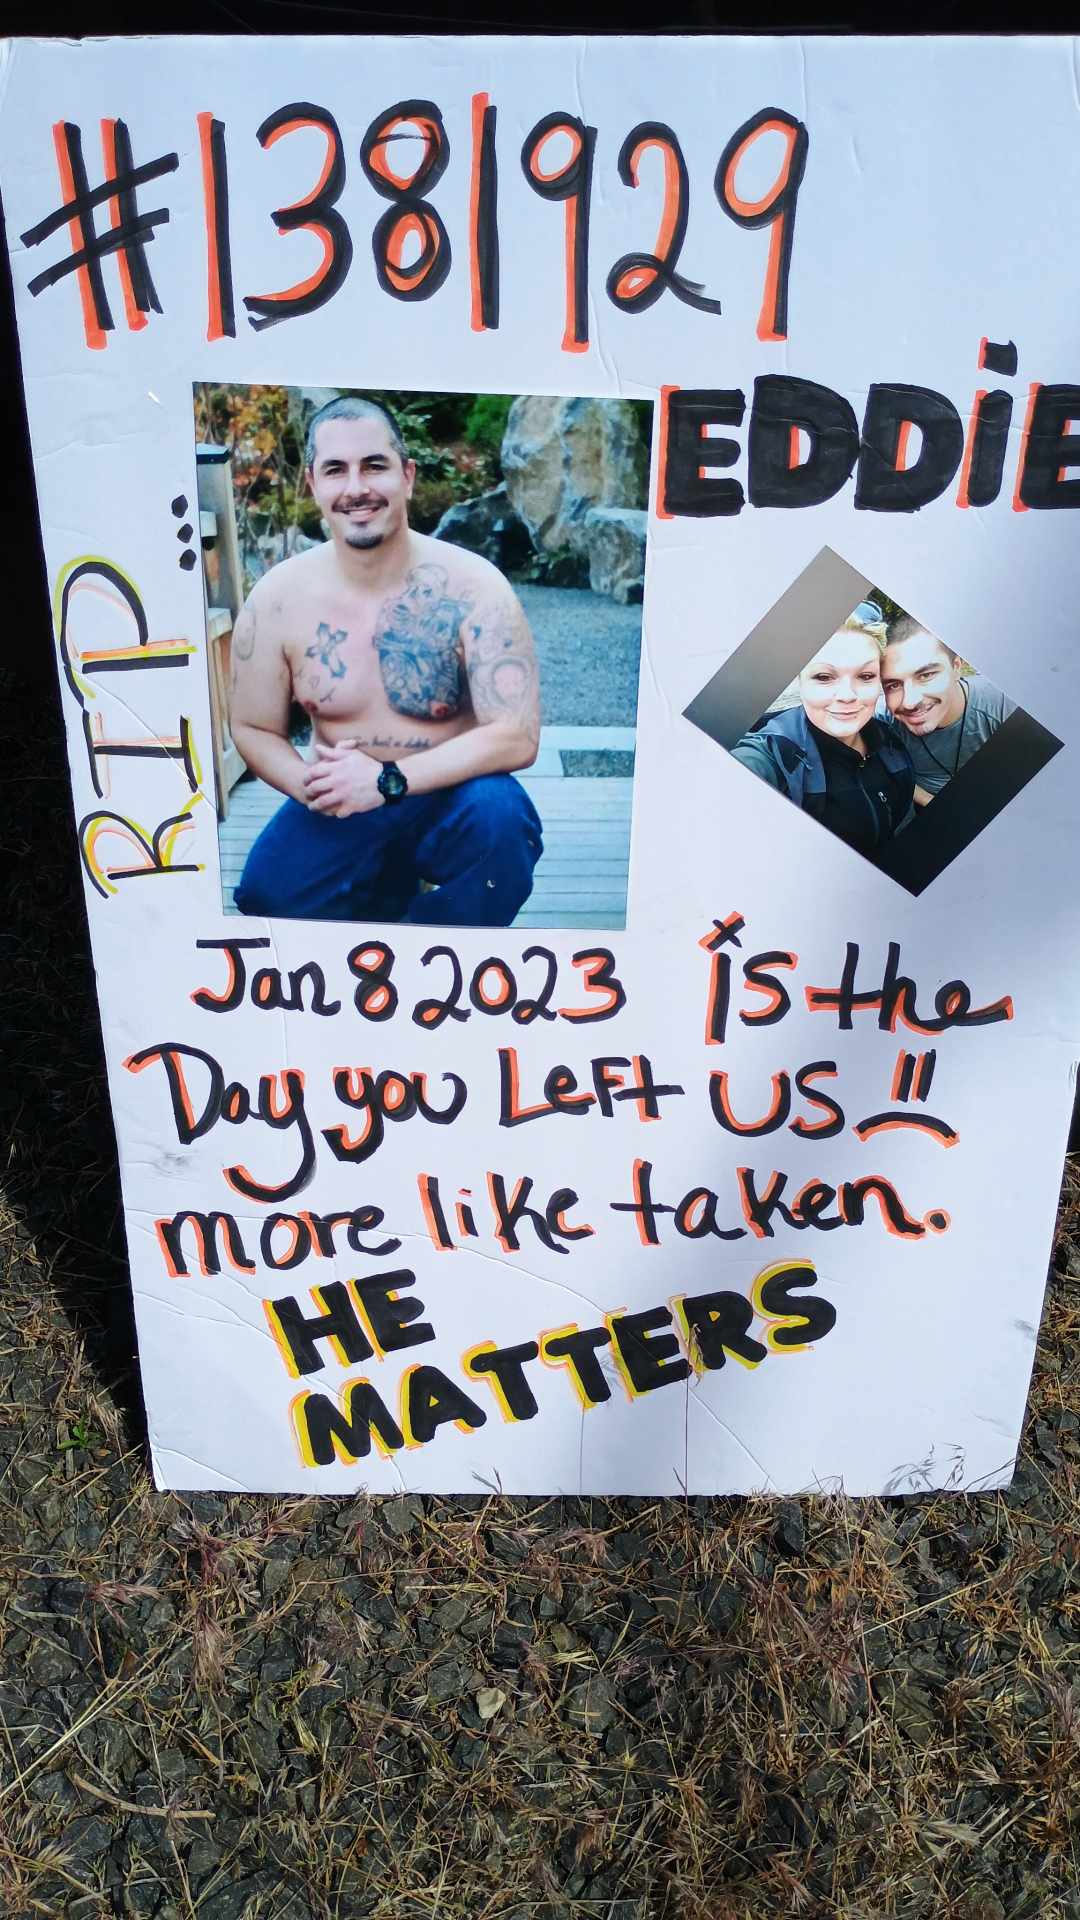 #1381929
EDDiE
RIP...
Jan 8 2023 is the
Day you Left US !!!
more like taken.
HE
MATTERS